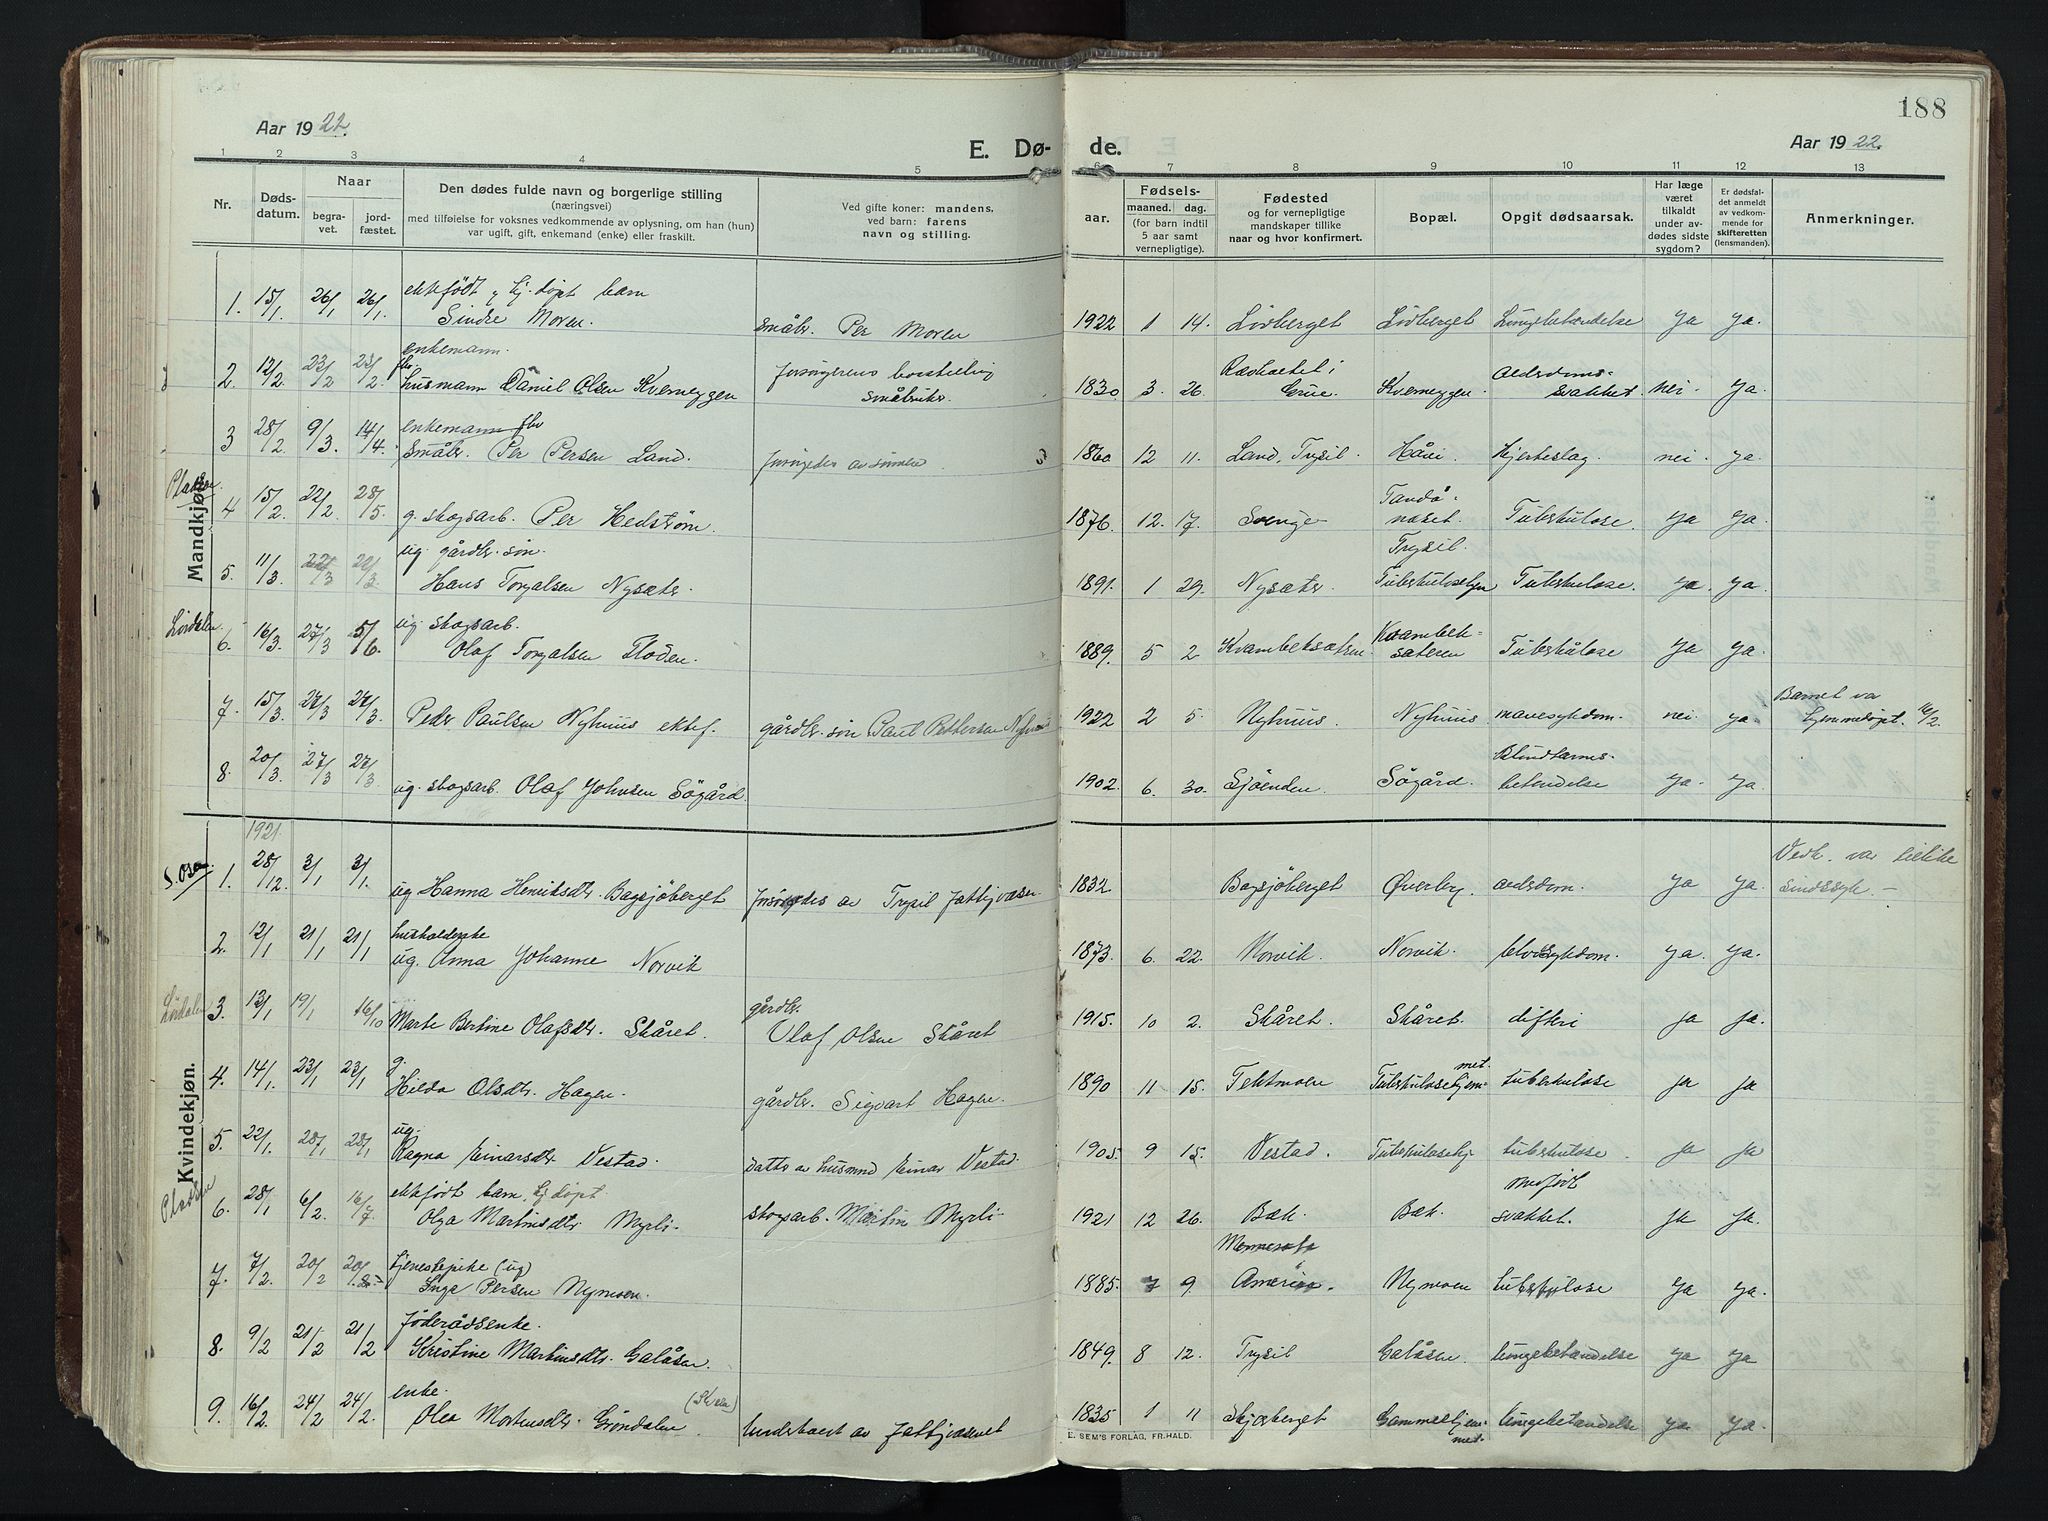 188
Aar 1922.
E. Dø-
de.
Aar 1922.
1 2 3 4 5 6 7 8 9 10 11 12 13
Nr.
Døds-
datum.
Naar
begra-
vet.
jord-
fæstet.
Den dødes fulde navn og borgerlige stilling
(næringsvei)
med tilføielse for voksnes vedkommende av oplysning, om han (hun)
var ugift, gift, enkemand (enke) eller fraskilt.
Ved gifte koner: mandens,
ved barn: farens
navn og stilling.
Fødsels-
aar.
maaned.
dag.
(for barn indtil
5 aar samt
vernepligtige).
Fødested
og for vernepligtige
mandskaper tillike
naar og hvor konfirmert.
Bopæl.
Opgit dødsaarsak.
Har læge
været
tilkaldt
under av-
dødes sidste
sygdom?
Er dødsfal-
det anmeldt
av vedkom-
mende for
skifteretten
(lensmanden).
Anmerkninger.
Mandkjøn.
1. 15/1 26/1 26/1 ektefödt, hj. döpt barn
Sindre Moren. Småbr. Per Moren 1922 1 14. Lövberget Lövberget Lungebetændelse ja ja.
2. 12/2. 23/2 23/2. enkemann.
fhv husmann Daniel Olsen Kverneggen forsörgerens bestilling
småbruker. 1830. 3. 26.
Grue. Kverneggen. alderdoms-
svakhet. nei. ja.
3 28/2 9/3. 14/4. enkemann fhv
småbr. Per Persen Land. forsörgedes av sönnene 1860 12 11. Land, Trysil. Håvi. Hjerteslag. nei. ja.
Pladsen.
4 15/2. 22/2 28/5. g. skogsarb. Per Hedström. 1876. 12. 17. Sverige Tandå-
næset. Tuberkulose. ja ja.
5. 11/3. 22/3 22/3. ug. gårdbr. søn.
Hans Torgalsen Nysæter. 1891. 1 29. Nysæter. Trysil.
Tuberkulosehjem Tuberkulose. ja. ja.
Lördalen.
6. 16/3. 27/3 5/6. ug. skogsarb.
Olaf Torgalsen Floden. 1889. 5 2 Kvambeksætren Kvambek-
sæteren Tuberkulose ja ja.
7. 15/3. 27/3 27/3. Peder Paulsen Nyhuus ektef. gårdbr. søn Paul Pettersen Nyhuus 1922 2 5. Nyhuus. Nyhuus mavesykdom. nei. ja. Barnet var
hjemmedöpt. 16/2.
8. 20/3. 27/3 27/3 ug. skogsarb. Olaf Johnsen Sögård. 1902. 6. 30. Sjöenden. Sögård. Blindtarms-
betendelse ja. ja.
Kvindekjøn.
S. Osen.
1921.
1. 28/12. 3/1 3/1. ug Hanna Henriksdtr. Bagsjöberget forsörgedes av Trysil fattigvæsen 1832 Bagsjöberget Överby. aldsdom. ja ja. Vedk. var tillike
sindssyk. —
2. 12/1 21/1 21/1 husholderske
ug. Anna Johanne Norvik 1873. 6. 22. Norvik. Norvik. blodsykdom. ja. ja.
Lördalen
3. 13/1 19/1 16/10 Marte Bertine Olafsdtr. Skåret. gårdbr.
Olaf Olsen Skåret 1915. 10 2. Skåret. Skåret. difteri ja ja.
4. 14/1. 23/1 23/1 g.
Hilda Olsdtr. Hagen. gårdbr. Sigvart Hagen. 1890 11 15. Tuberkulosehjem-
met. tuberkulose ja ja
5. 22/1. 28/1 28/1 ug.
Ragna Einarsdtr Vestad. datter av husmnd Einar Vestad. 1905. 9 15. Vestad. Tuberkulosehj tuberkulose. ja ja
Pladsen
6. 28/1 6/2. 16/7. ektefödt barn, hj döpt.
Olga Martinsdtr Myrli. skogsarb. Martin Myrli. 1921 12 26. Bæk. Bæk. medfödt
svakhet. ja ja.
7. 7/2. 20/2 20/2 tjenestepike (ug)
Inga Persen Nymoen. 1885. 7 9.
Amerika. Nymoen tuberkulose ja ja.
8. 9/2 21/2 21/2 föderådsenke.
Kristine Martinsdtr. Galåsen. 1849. 8 12. Trysil Galåsen. lungebetændelse ja ja
9. 16/2. 24/2 24/2. enke.
Olea Mortensdtr. Gröndalen (Skåren) underharet av fattigvæsenet 1835 1 11 Skjærberget Gammelhjem-
met. lungebetændelse ja. ja.
E. SEM'S FORLAG, FR.HALD.